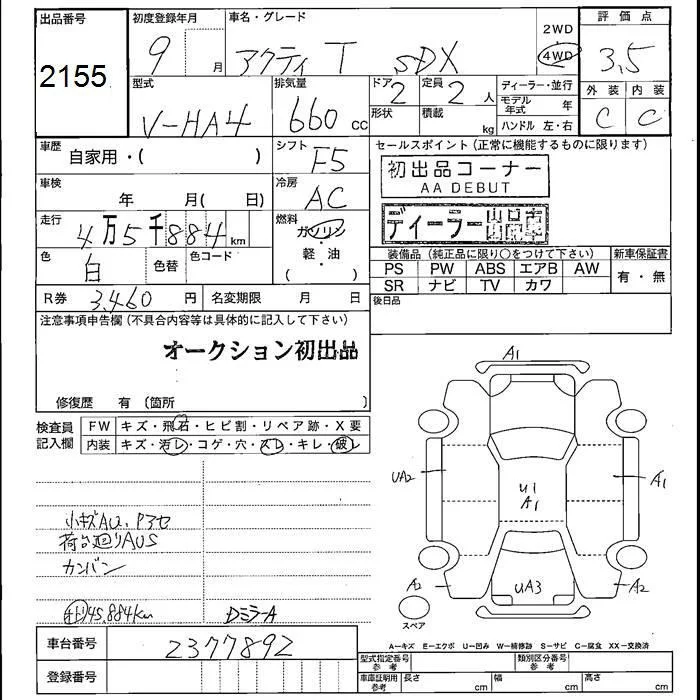 出品番号 初度登録年月 車名・グレード 2WD 評価点
2155 9 月 アクティ T SDX 4WD 3.5
型式 排気量 ドア 定員 ディーラー・並行 外装 内装
V-HA4 660 cc 2 2 人 モデル年式 年 C C
形状 積載 kg ハンドル 左・右
車歴 自家用・( ) シフト F5 セールスポイント(正常に機能するものに限ります)
初出品コーナー
AA DEBUT
車検 年 月( 日) 冷房 AC
ディーラー
走行 4万5千884km 燃料 ガソリン
軽・油
( )
色 白 色替 色コード
装備品(純正品に限り○をつけて下さい) 新車保証書
PS PW ABS エアB AW 有・無
SR ナビ TV カワ
R券 3,460 円 名変期限 月 日 後日品
注意事項申告欄(不具合内容等は具体的に記入して下さい)
オークション初出品
修復歴 有 (箇所 )
検査員記入欄 FW キズ・飛石・ヒビ割・リペア跡・X要
内装 キズ・汚レ・コゲ・穴・スレ・キレ・破レ
小キズAU、Pアセ
荷台廻りAUS
カンバン
45,884km DミラーA
A1
UA2
U1
A1
A1
A2
UA3
A2
スペア
車台番号 2377892
登録番号
A−キズ E−エクボ U−凹み W−補修跡 S−サビ C−腐食 XX−交換済
型式指定番号参考 類別区分番号参考
車庫証明用参考 長さ cm 幅 cm 高さ cm